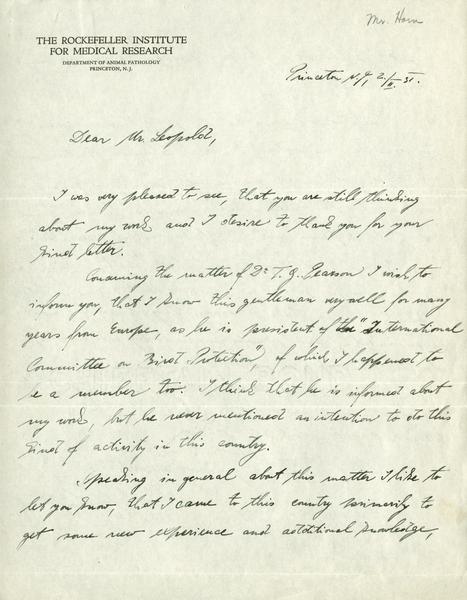 Mr. Horn
THE ROCKEFELLER INSTITUTE
FOR MEDICAL RESEARCH
DEPARTMENT OF ANIMAL PATHOLOGY
PRINCETON, N. J.
Princeton N.J. 31.
Dear Mr. Leopold,
I was very pleased to see, that you are still thinking
about my work and I desire to thank you for your
kind letter.
Concerning the matter of Dr. T. G. Pearson I wish to
inform you, that I know this gentleman very well for many
years from Europe, as he is president of the "International
Committee on Bird Protection", of which I happened to
be a member too. I think that he is informed about
my work, but he never mentioned an intention to do this
kind of activity in this country.
Speaking in general about this matter I like to
let you know, that I came to this country primarily to
get some new experience and additional knowledge,